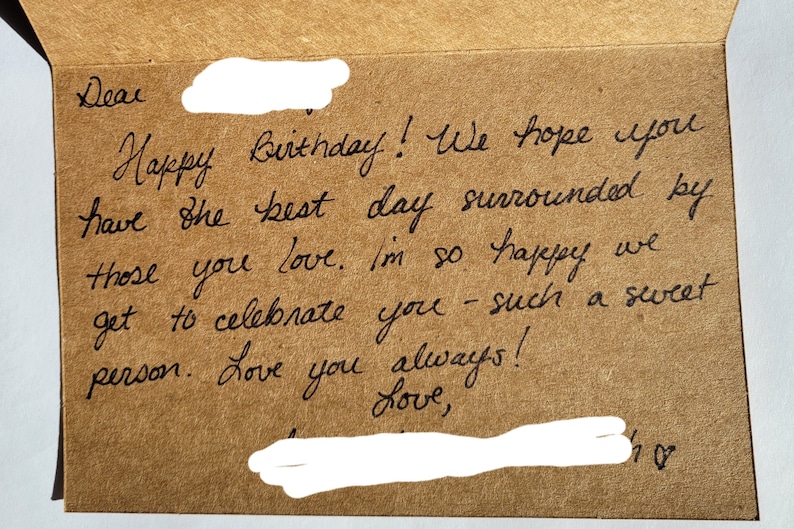 Dear
Happy Birthday! We hope you
have the best day surrounded by
those you love. I'm so happy we
get to celebrate you - such a sweet
person. Love you always!
Love,
♡